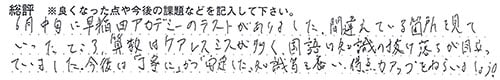 総評 ※良くなった点や今後の課題などを記入して下さい。
6月中旬に早稲田アカデミーのテストがありました。間違えている箇所を見て
いったところ、算数はケアレスミスが多く、国語は知識の抜け落ちが目立っ
ていました。今後は「丁寧に」かつ安定した知識量を養い、得点力アップをねらいましょう。